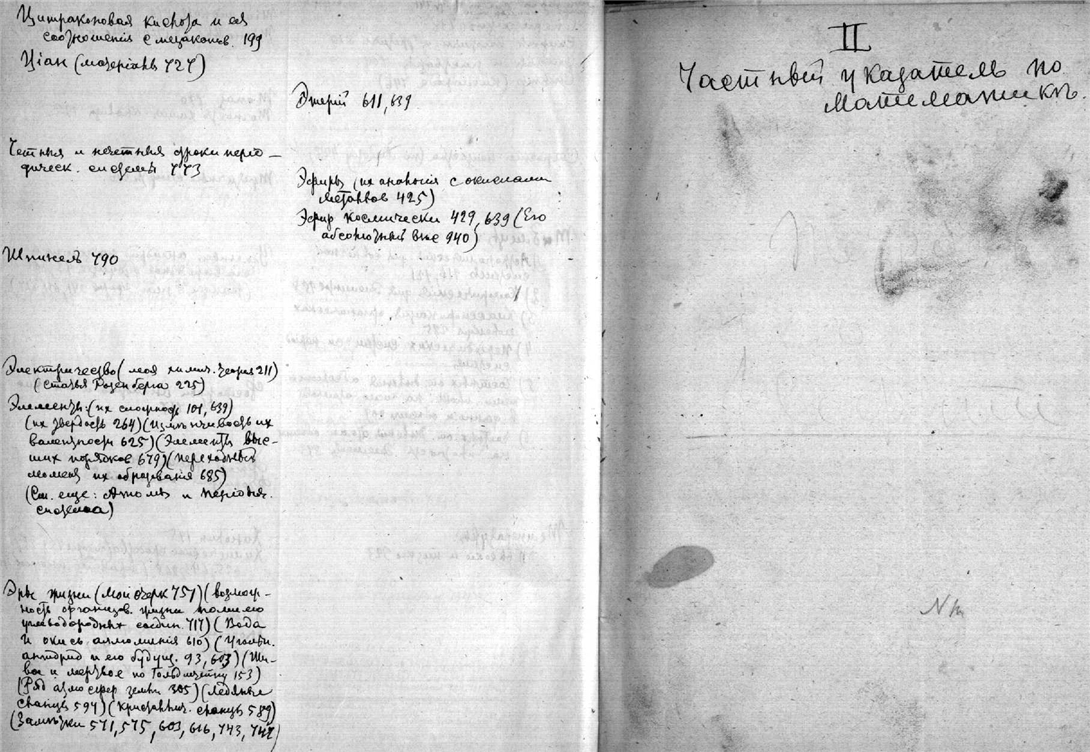 Цитраконовая кислота и ея
соотношенія с мезаконов. 199
Ціан (матеріалъ 727)
Четныя и нечетныя сроки перio-
дическ. системы 773
Шпинель 790
Электричество (моя химич. теорія 211)
(Статья Розенберга 225)
Элементы: (их сложность 101, 639)
(их твердость 264) (Измѣнчивость их
валентности 625) (Элементы выс-
ших порядков 679) (переходный
момент их образованія 685)
(См. еще: Атомъ и періодич.
система)
Эры жизни (мой очерк 757) (возмож-
ность организов. жизни помимо
углеводородных соедин. 717) (Вода
и окись аллюминія 610) (Угольн.
ангидрид и его будущ. 93, 603) (Жи-
вое и мертвое по Гольдшмидту 153)
(Ряд атмосфер земли 305) (Ледяные
сланцы 594) (Кристаллич. сланцы 589)
(Замѣтки 571, 575, 603, 616, 743, 747)
Этерій 611, 639
Эфиры (их аналогія с окислами
металлов 425)
Эфир космически 429, 639 (Его
абсолютный вес 940)
II
Частный указатель по
математикѣ.